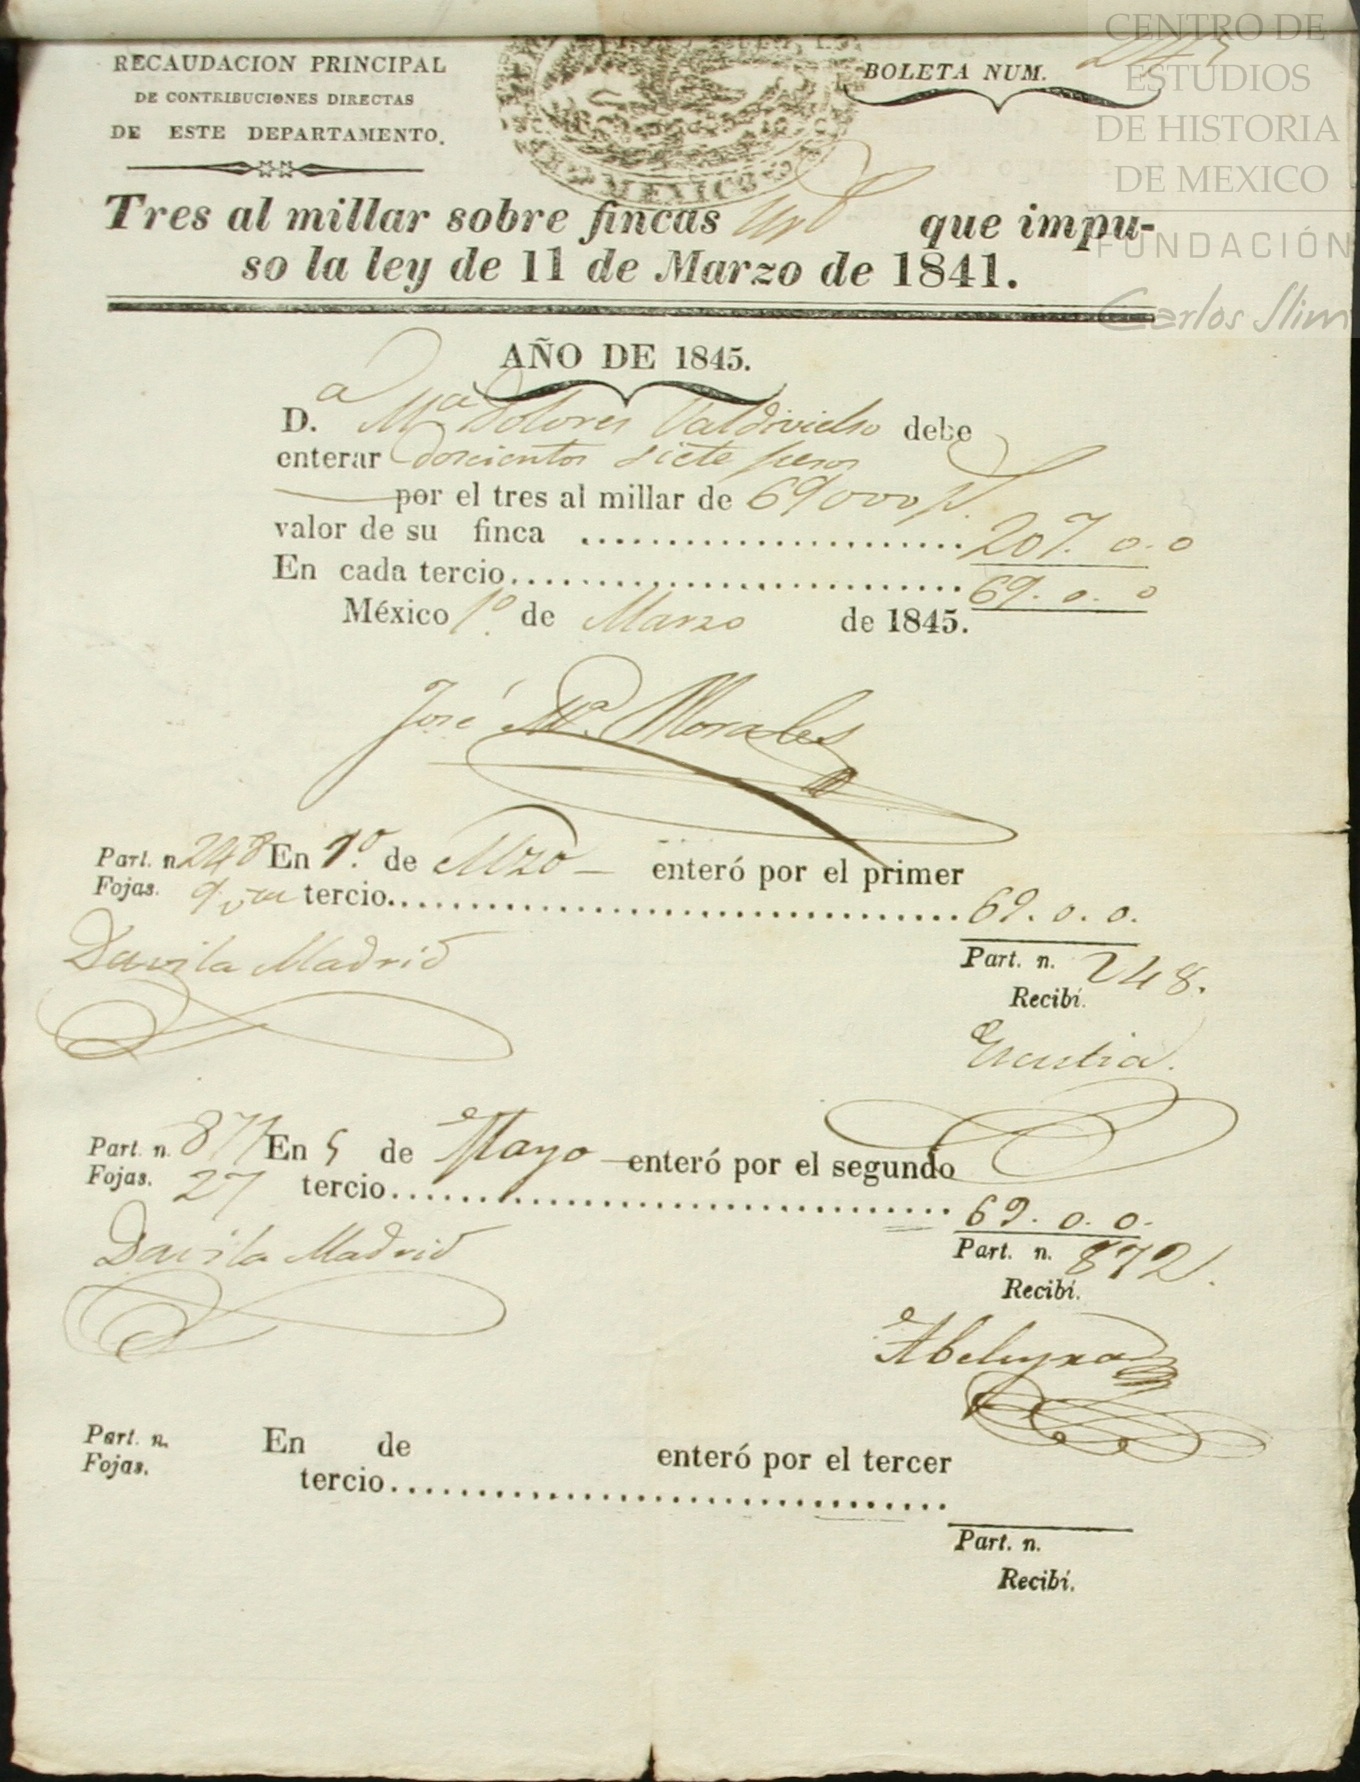 RECAUDACION PRINCIPAL
DE CONTRIBUCIONES DIRECTAS
DE ESTE DEPARTAMENTO.
MEXICO
BOLETA NUM.
CENTRO DE
ESTUDIOS
DE HISTORIA
DE MEXICO
FUNDACIÓN
Carlos Slim
Tres al millar sobre fincas que impu-
so la ley de 11 de Marzo de 1841.
AÑO DE 1845.
D.a Ma Dolores Valdivielso debe
enterar doscientos siete pesos
por el tres al millar de 69000 p.
valor de su finca 207. 0. 0
En cada tercio 69. 0. 0
México 1º de Marzo de 1845.
José Ma. Morales
Part. n. 248 En 1º. de Mzo enteró por el primer
Fojas. 9 tercio 69. 0. 0.
Davila Madrid
Part. n. 248.
Recibí.
Part. n. En 5 de Mayo enteró por el segundo
Fojas. 27 tercio 69. 0. 0.
Davila Madrid
Part. n. 872.
Recibí.
Part. n. En de enteró por el tercer
Fojas. tercio
Part. n.
Recibí.